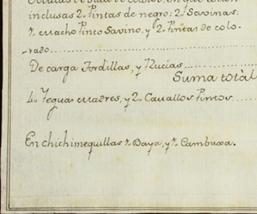 inclusas 2. Pintas de negro: 2. Savinas.
1. macho Pinto Savino, y 2. Pintas de colo-
rado
De carga Tordillas, y Rucias
Suma totàl
4. Yeguas madres, y 2. Cavallos Pintos
En chichimequillas 1. Baya, y 1. Cambuxa.